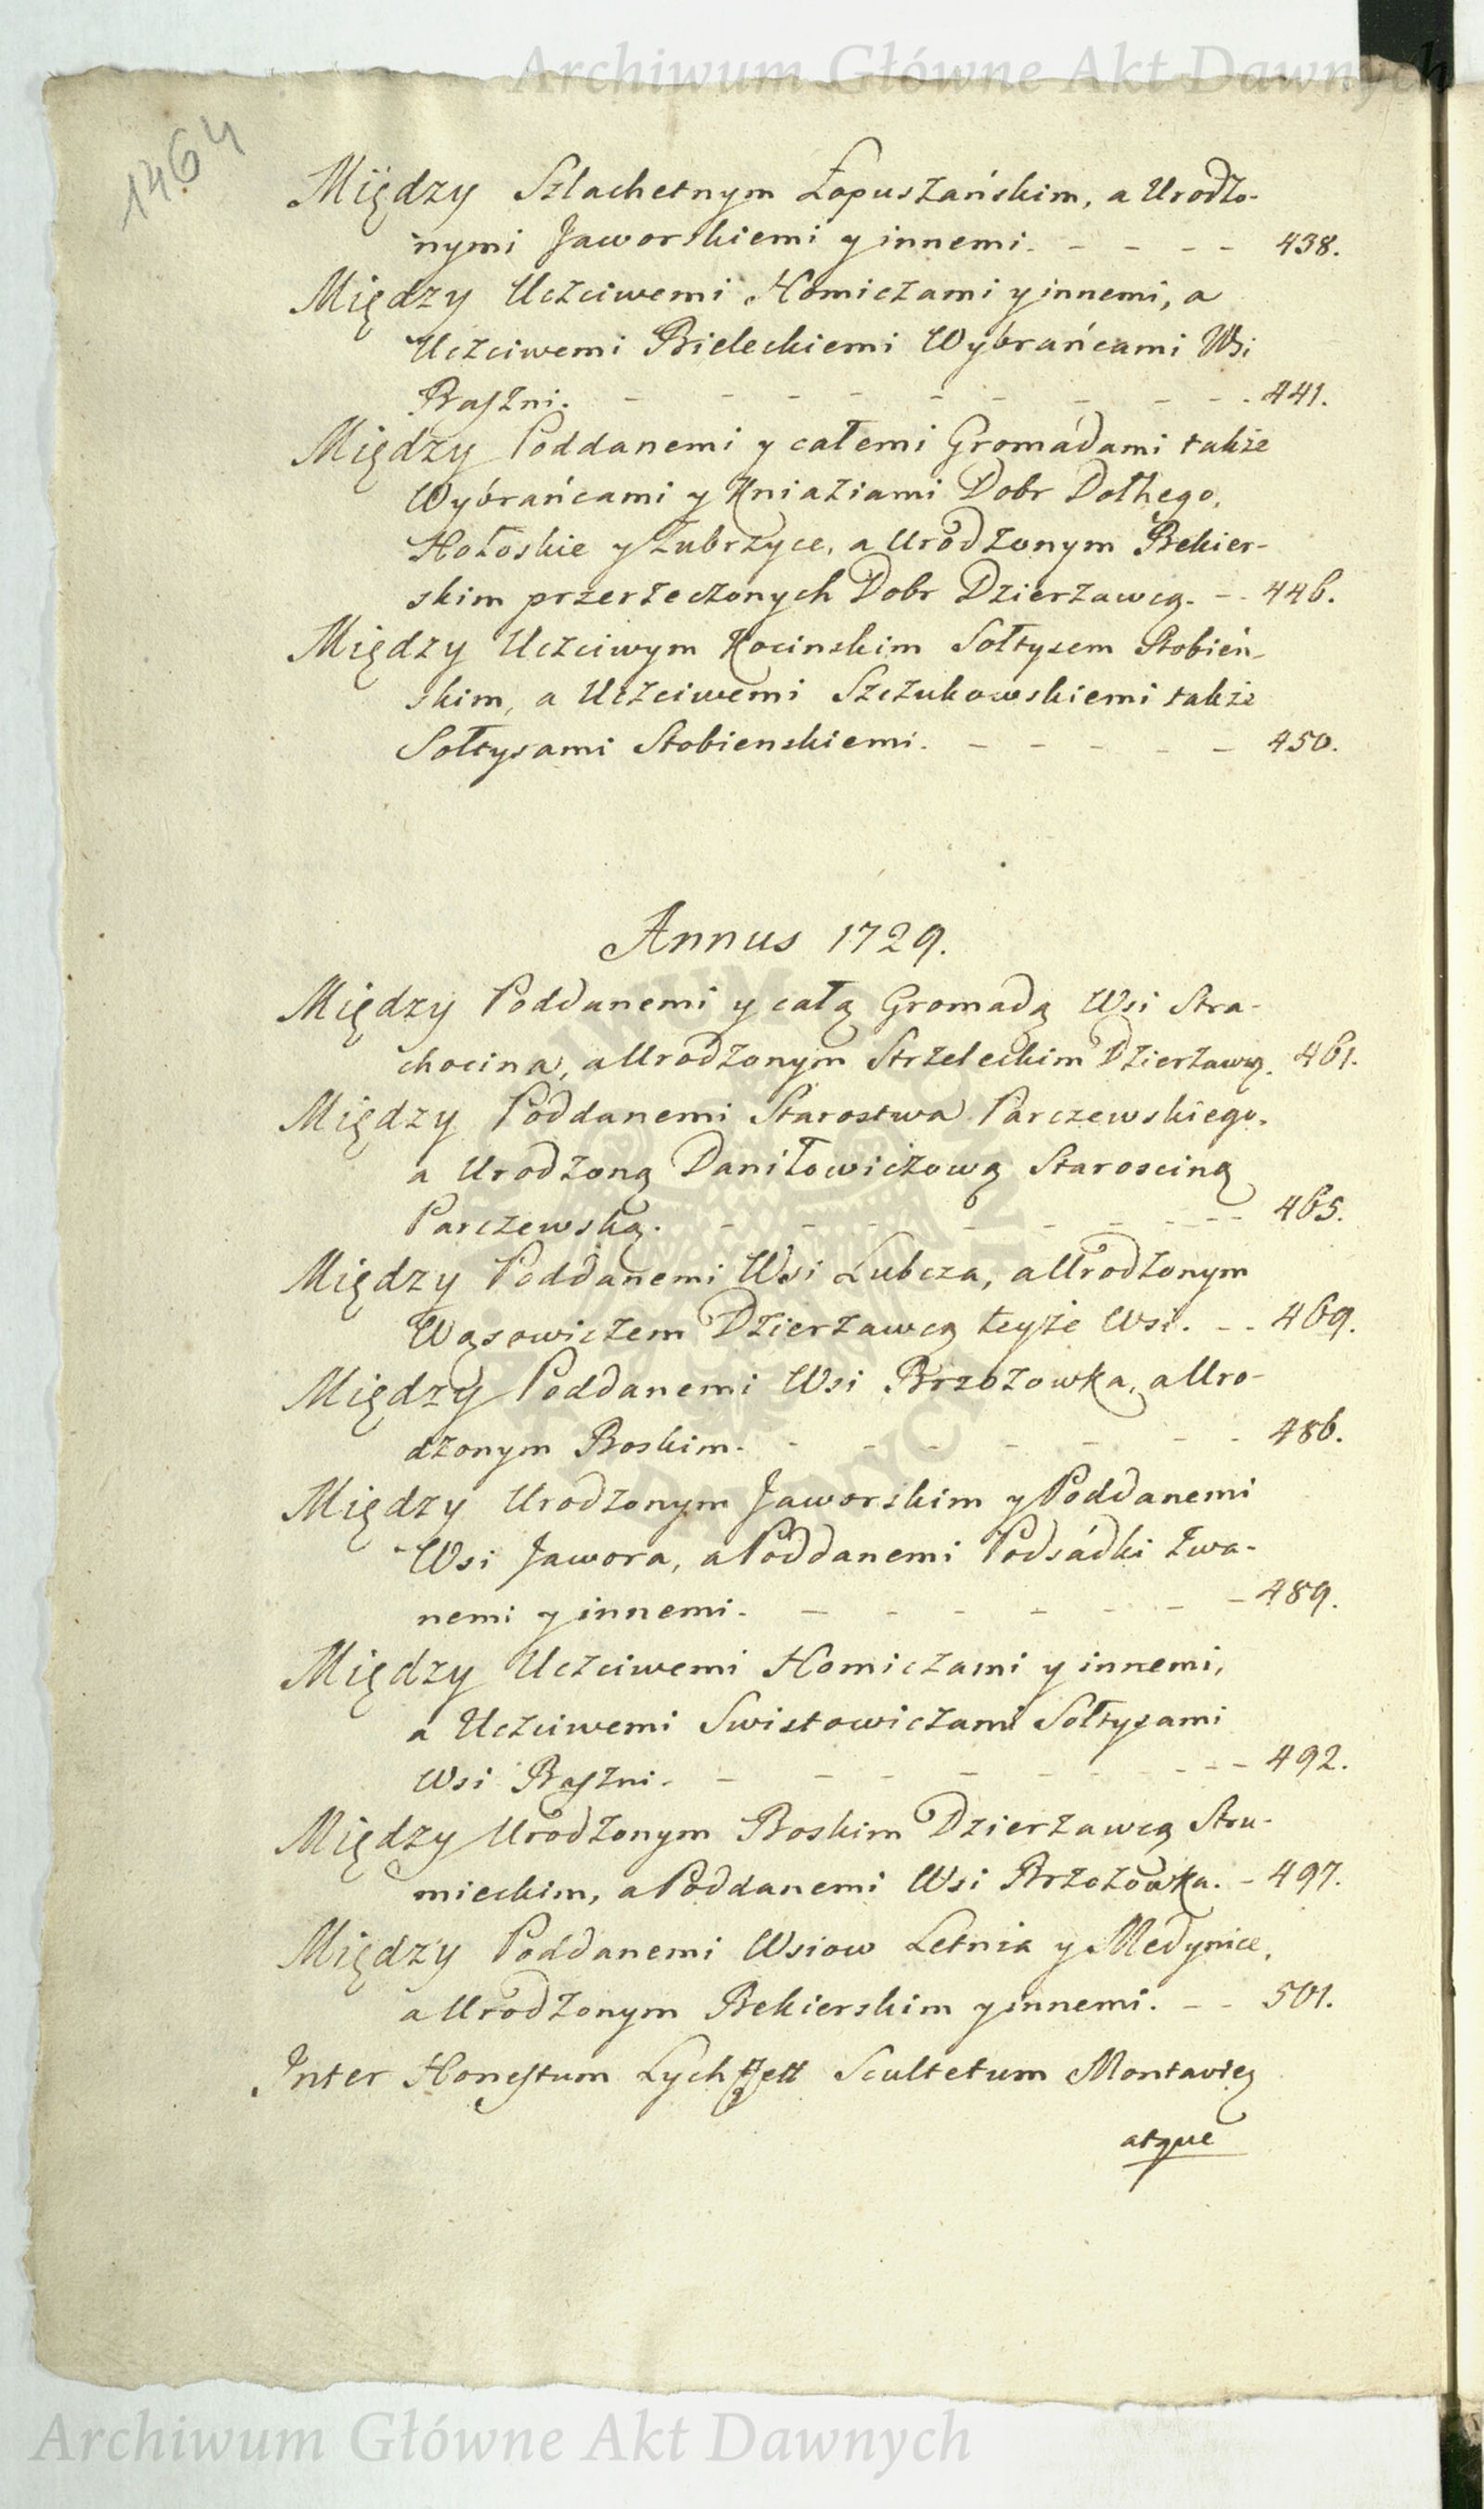 Archiwum Główne Akt Dawnych
1464
Między Szlachetnym Łopuszańskim, a Urodzo-
nymi Jaworskiemi y innemi. - - - - 438.
Między Uczciwemi Homiczami y innemi, a
Uczciwemi Bieleckiemi Wybrańcami Wsi
Baszni. - - - - - - - - - 441.
Między Poddanemi y całemi Gromadami także
Wybrańcami y Kniaziami Dobr Dołhego,
Hołoskie y Zubrzyce, a Urodzonym Bekier-
skim przerzeczonych Dobr Dzierzawcą. - - 446.
Między Uczciwym Kocinskim Sołtysem Stobień-
skim, a Uczciwemi Szczukowskiemi także
Sołtysami Stobienskiemi. - - - - - 450.
Annus 1729.
Między Poddanemi y całą Gromadą Wsi Stra-
chocina, a Urodzonym Strzeleckim Dzierzawcą. 461.
Między Poddanemi Starostwa Parczewskiego,
a Urodzoną Daniłowiczową Starosciną
Parczewską. - - - - - - - - - 465.
Między Poddanemi Wsi Lubcza, a Urodzonym
Wąsowiczem Dzierzawcą teyże Wsi. - - 469.
Między Poddanemi Wsi Brzozowka, a Uro-
dzonym Boskim. - - - - - - - - 486.
Między Urodzonym Jaworskim y Poddanemi
Wsi Jawora, a Poddanemi Podsádki zwa-
nemi y innemi. - - - - - - - - 489.
Między Uczciwemi Homiczami y innemi,
a Uczciwemi Swistowiczami Sołtysami
Wsi Baszni. - - - - - - - - - 492.
Między Urodzonym Boskim Dzierzawcą Stru-
mieckim, a Poddanemi Wsi Brzozowka. - 497.
Między Poddanemi Wsiow Letnia y Medynice,
a Urodzonym Bekierskim y innemi. - - 501.
Inter Honestum Scultetum Montavięs
atque
Archiwum Główne Akt Dawnych